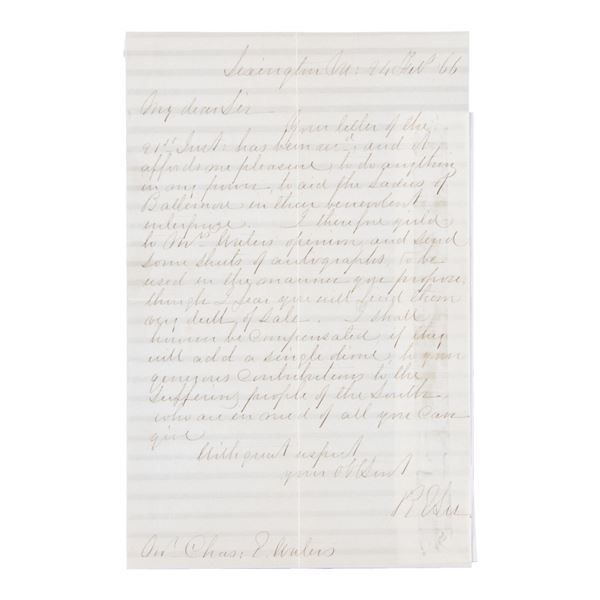 Lexington Va: 24 Feb 66
My dear Sir
Your letter of the
21st Inst: has been recd and it
affords me pleasure to do anything
in my power, to aid the Ladies of
Baltimore in their benevolent
enterprize. I therefore yield
to Mrs. Waters opinion and send
some sheets of autographs, to be
used in the manner you propose,
though I fear you will find them
very dull of sale. I shall
however be compensated, if they
will add a single dime, to your
generous contributions to the
suffering people of the South
who are in need of all you can
give
With great respect
your Obt Servt
R E Lee
Mr. Chas: E. Waters